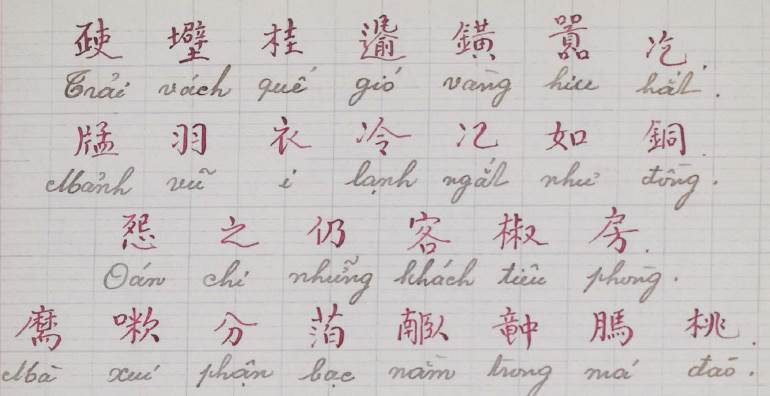 桂 鐄 囂
Trải vách quế gió vàng hiu hắt.
羽 衣 冷 如 銅
Mảnh vũ i lạnh ngắt như đồng.
怨 之 仍 客 椒 房.
Oán chi những khách tiêu phòng.
分 萡 𦣰 𥪝 𦟐 桃.
Mà xui phận bạc nằm trong má đào.